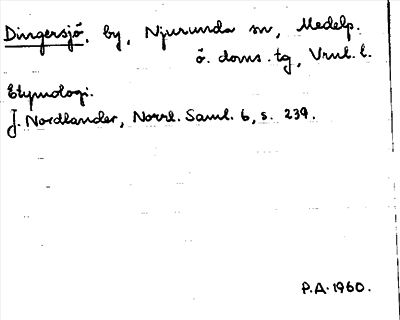 Dingersjö, by, Njurunda sn, Medelp.
ö. doms. tg, Vnrl. l.
Etymologi.
J. Nordlander, Norrl. Saml. 6, s. 239.
P.A. 1960.